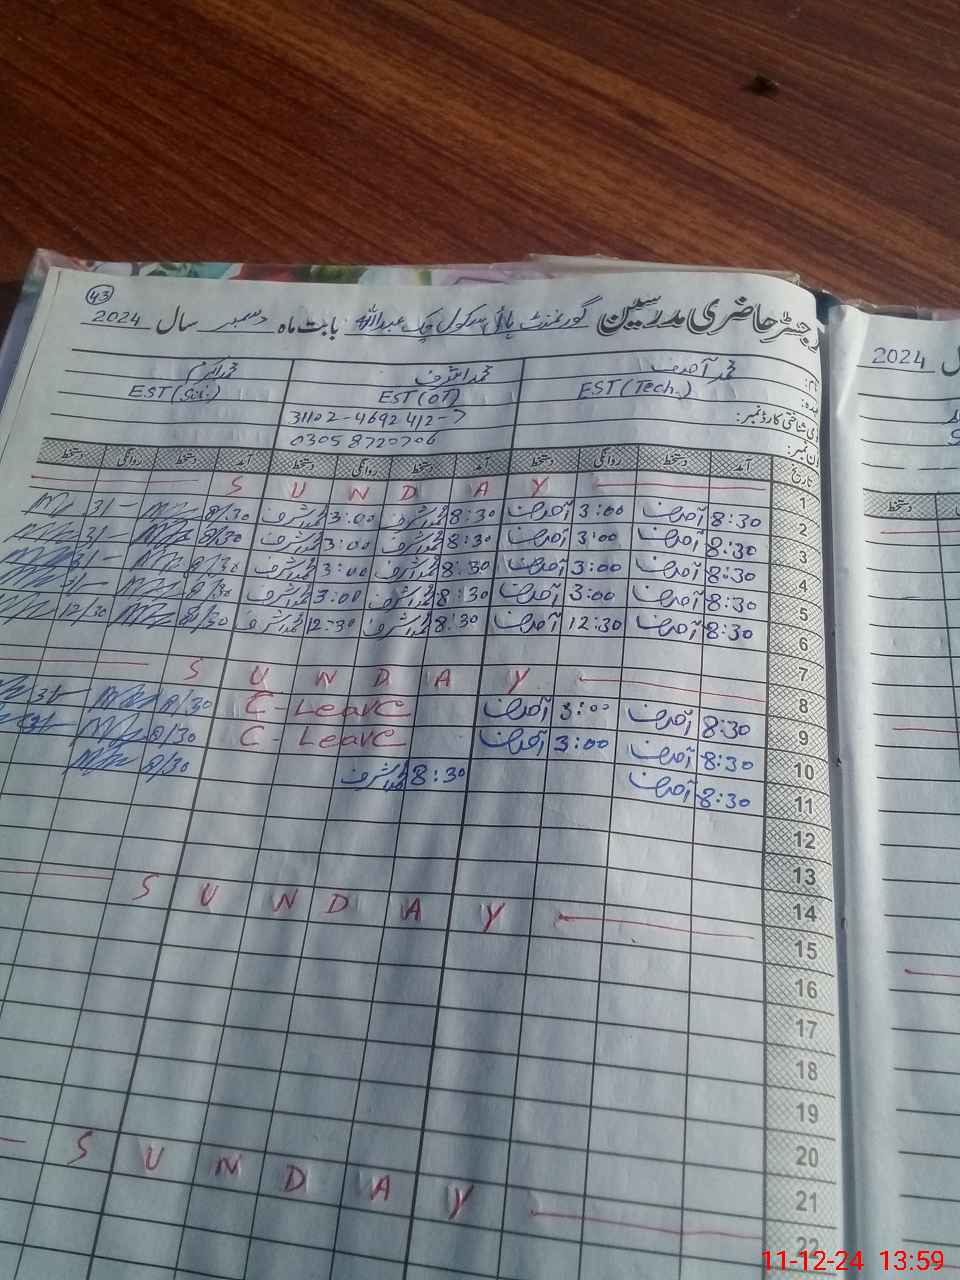 43
رجسٹر حاضری مدرسین گورنمنٹ ہائی سکول چک عبداللہ بابت ماہ دسمبر سال 2024
نام: محمد آصف محمد اشرف محمد اکرم
EST (Tech.) EST (OT) EST (Sci.)
شناختی کارڈ نمبر: 31102-4692412-7
فون نمبر: 03058720706
تاریخ آمد دستخط روانگی دستخط آمد دستخط روانگی دستخط آمد دستخط روانگی دستخط
1 SUNDAY
2 8:30 آصف 3:00 آصف 8:30 محمد اشرف 3:00 محمد اشرف 8/30 31-
3 8:30 آصف 3:00 آصف 8:30 محمد اشرف 3:00 محمد اشرف 8/30 31-
4 8:30 آصف 3:00 آصف 8:30 محمد اشرف 3:00 محمد اشرف 8/30 31-
5 8:30 آصف 3:00 آصف 8:30 محمد اشرف 3:00 محمد اشرف 8/30 31-
6 8:30 آصف 12:30 آصف 8:30 محمد اشرف 12:30 محمد اشرف 8/30 12/30
7
8 SUNDAY
9 8:30 آصف 3:00 آصف C-Leave 8/30 31-
10 8:30 آصف 3:00 آصف C-Leave 8/30 31-
11 8:30 آصف 8:30 محمد اشرف 8/30
12
13
14
15 SUNDAY
16
17
18
19
20
21
22 SUNDAY
2024
11-12-24 13:59